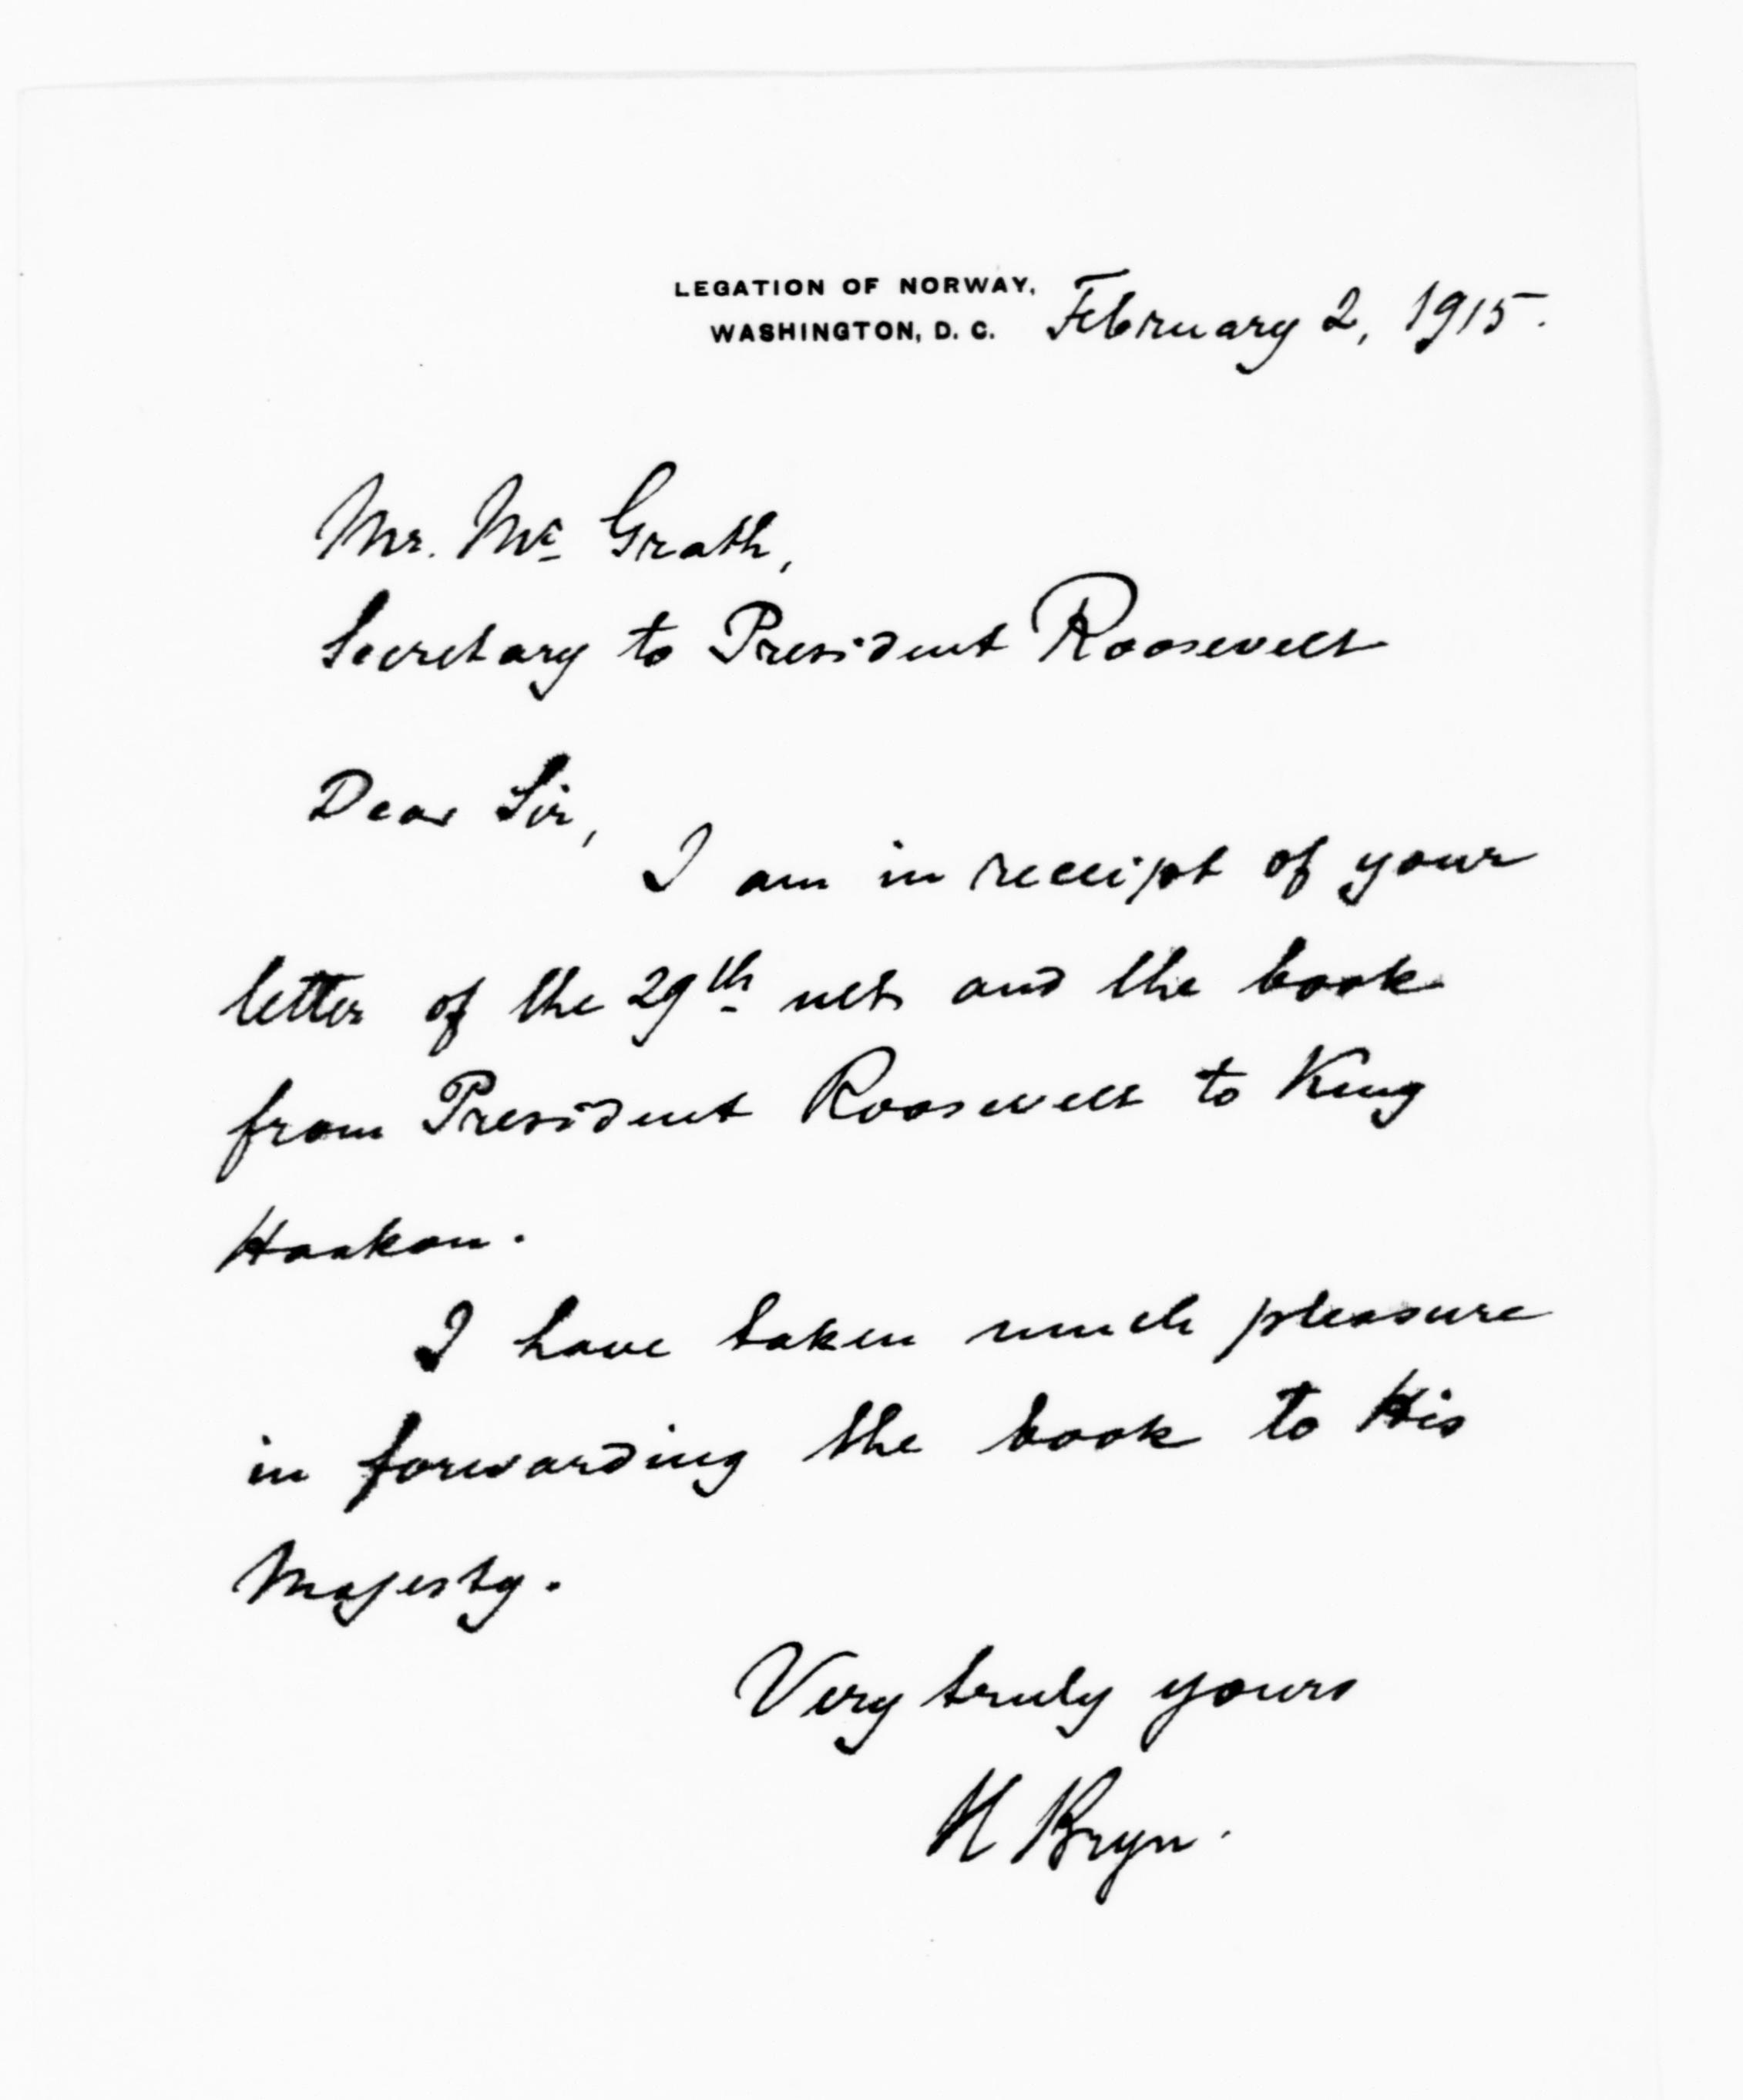 LEGATION OF NORWAY,
WASHINGTON, D. C. February 2, 1915.
Mr. Mc Grath,
Secretary to President Roosevelt
Dear Sir,
I am in receipt of your
letter of the 29th ult. and the book
from President Roosevelt to King
Haakon.
I have taken much pleasure
in forwarding the book to His
Majesty.
Very truly yours
H Bryn.